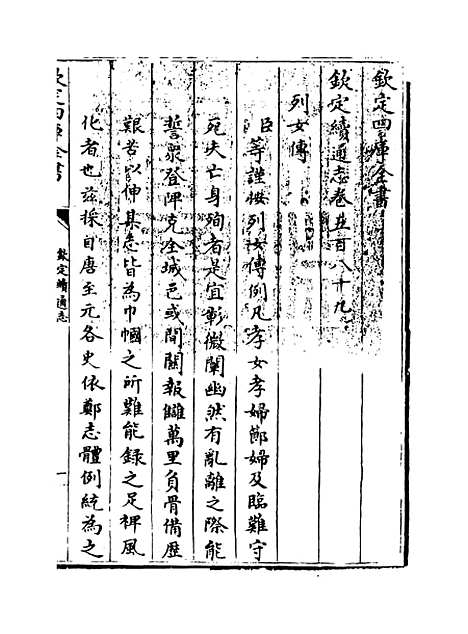 欽定四庫全書
欽定續通志卷五百八十九
列女傳
臣等謹按列女傳例凡孝女孝婦節婦及臨難守
死失亡身殉者是宜彰微闡幽然有亂離之際能
誓衆登陴克全城邑或間關報讎萬里負骨備歴
艱苦以伸其志皆為巾幗之所難能録之足裨風
化者也兹採自唐至元各史依鄭志體例統為之
欽定四庫全書
欽定續通志
一